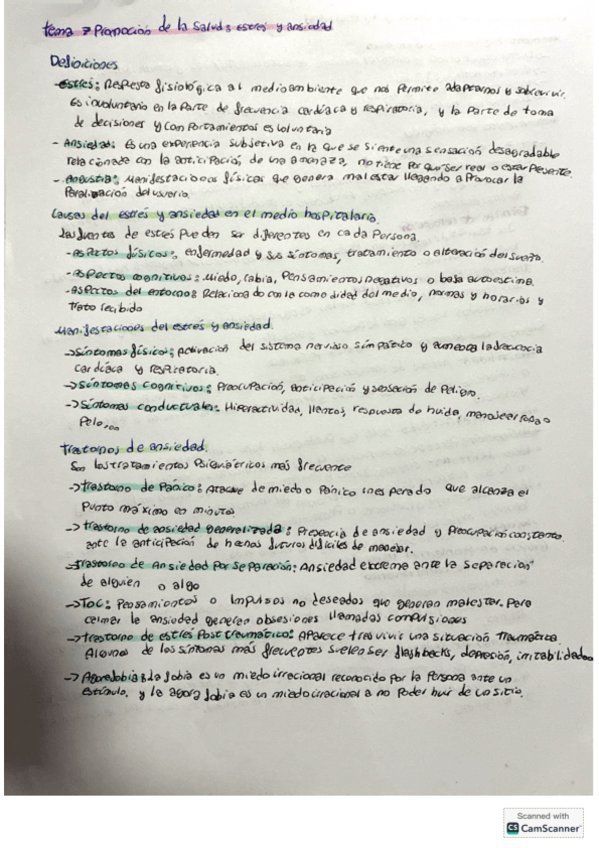 tema 7 Promoción de la salud: estrés y ansiedad
Definiciones
-estrés: Respuesta fisiológica al medioambiente que nos permite adaptarnos y sobrevivir.
Es involuntario en la parte de frecuencia cardíaca y respiratoria, y la parte de toma
de decisiones y comportamientos es voluntaria
- Ansiedad: Es una experiencia subjetiva en la que se siente una sensación desagradable
relacionada con la anticipación de una amenaza, no tiene por que ser real o estar presente.
- Angustia: Manifestaciones físicas que genera malestar llegando a provocar la
Paralización del usuario.
Causas del estrés y ansiedad en el medio hospitalario.
Las fuentes de estrés pueden ser diferentes en cada persona.
-aspectos físicos: enfermedad y sus síntomas, tratamiento o alteración del sueño.
-aspectos cognitivos: Miedo, rabia, Pensamientos negativos o baja autoestima.
-aspectos del entorno: Relacionado con la comodidad del medio, normas y horarios y
trato recibido
Manifestaciones del estrés y ansiedad.
→Síntomas físicos: Activación del sistema nervioso simpático y aumenta la frecuencia
cardíaca y respiratoria.
→Síntomas cognitivos: Preocupación, anticipación y sensación de peligro.
→Síntomas conductuales: Hiperactividad, llantos, respuesta de huida, manosear ropa o
Pelo...
Trastornos de ansiedad.
Son los tratamientos Psiquiátricos más frecuente
→trastorno de Pánico: Ataque de miedo o Pánico inesperado que alcanza el
Punto máximo en minutos
→trastorno de ansiedad generalizada: Presencia de ansiedad y Preocupación constante
ante la anticipación de hechos futuros difíciles de manejar.
→trastorno de Ansiedad Por Separación: Ansiedad extrema ante la separación
de alguien o algo
→TOC: Pensamientos o impulsos no deseados que generan malestar. Para
calmar la ansiedad generan obsesiones llamadas compulsiones
→trastorno de estrés Post traumático: Aparece tras vivir una situación traumática.
Algunos de los síntomas más frecuentes suelen ser flashbacks, depresión, irritabilidad
→Agorafobia: la fobia es un miedo irracional reconocido por la Persona ante un
estímulo, y la agorafobia es un miedo irracional a no poder huir de un sitio.
Scanned with
CS CamScanner